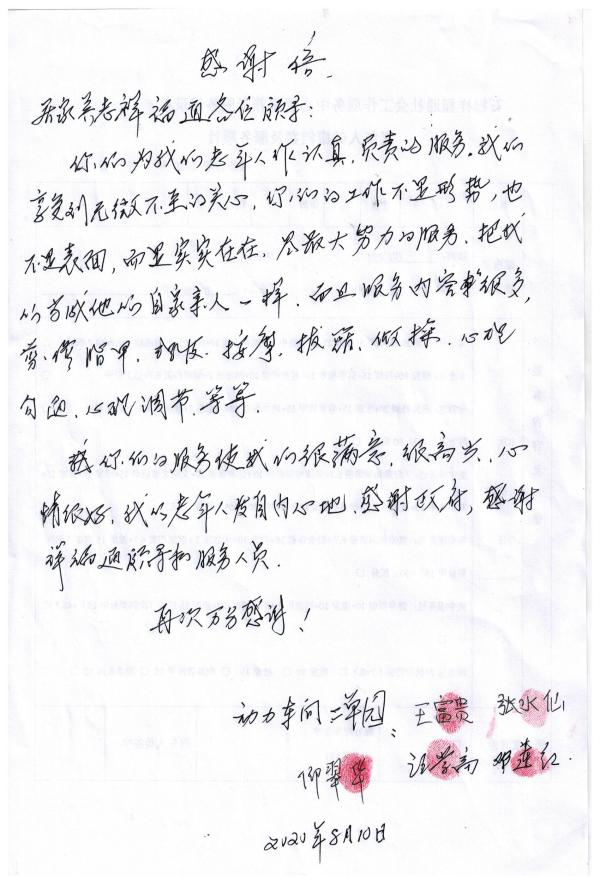 感谢信
居家养老祥福通各位领导：
你们为我们老年人作认真，负责的服务。我们
享受到无微不至的关心，你们的工作不是形势，也
不是表面，而是实实在在，尽最大努力的服务，把我
们当成他们自家亲人一样，而且服务内容很多，
剪修脂甲，按摩，拔罐，做操，心理
勾通，心理调节等等
你们的服务使我们很满意，很高兴，心
情很好，我们老年人发自内心地，感谢政府，感谢
祥福通领导和服务人员
再次万分感谢！
动力车间二单园：王富贵 张水仙
仰翠华 汪学高 邓莲红
2020年8月10日